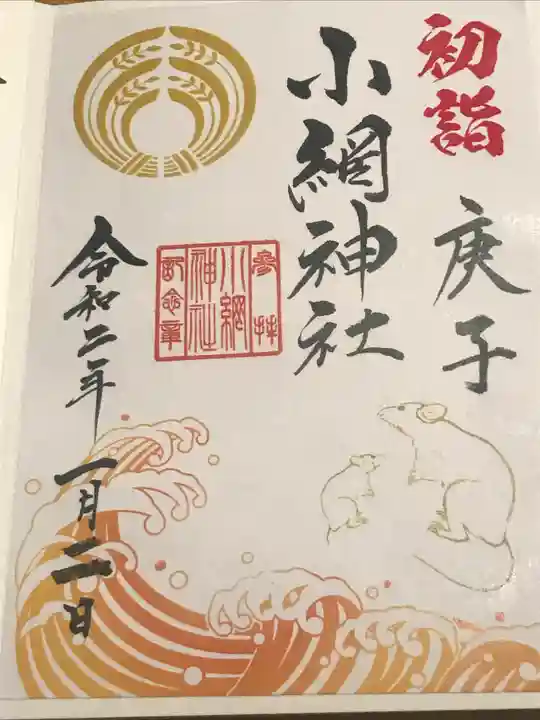 初詣
庚子
小網神社
参拝
小網
神社
記念章
令和二年 一月二日